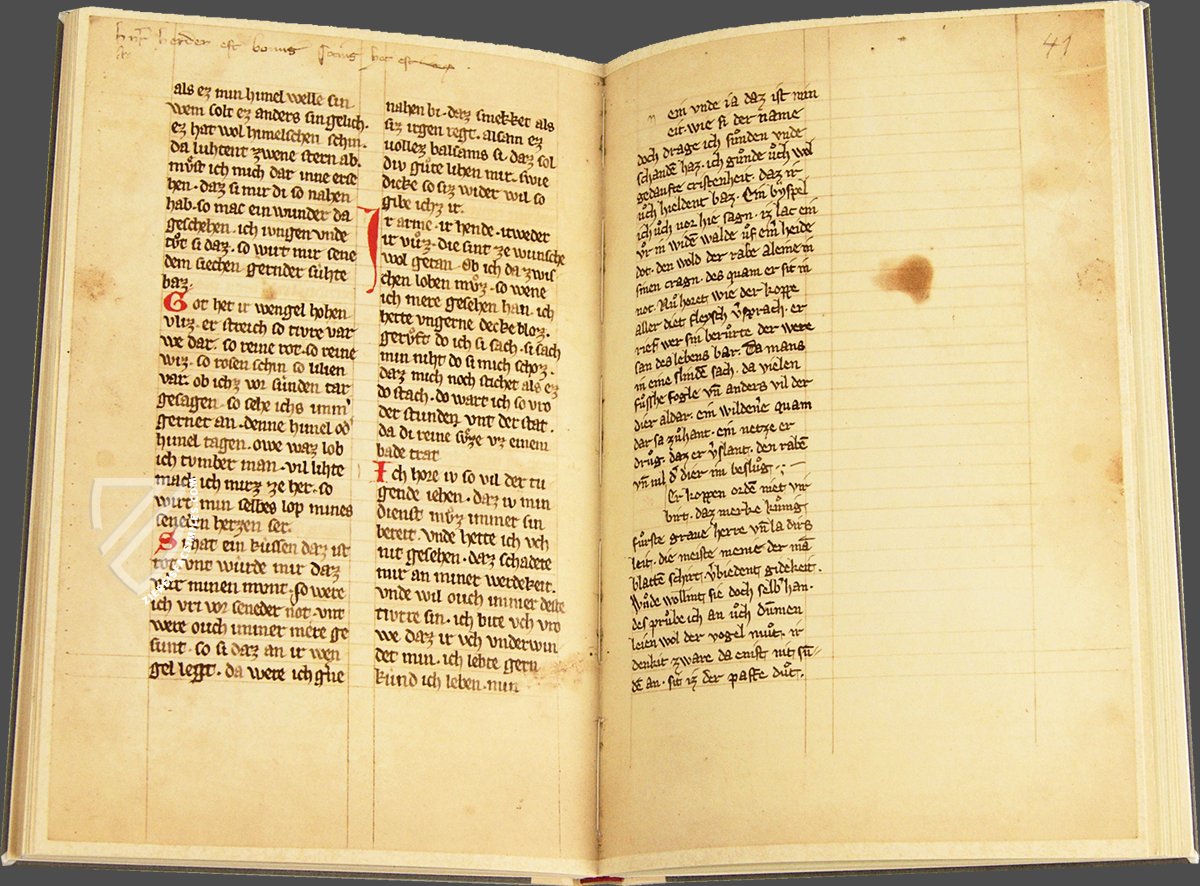 hnr herder est bonus socius hoc est
41
als ez min himel welle sin
wem solt ez anders sin gelich.
ez hat wol himelschen schin.
da luhtent zwene stern ab.
mvͦst ich mich dar inne erse
hen. daz si mir di so nahen
hab. so mac ein wunder da
geschehen. ich iungen vnde
tvͦt si daz. so wirt mir sene
dem siechen gernder suhte
baz.
Got het ir wengel hohen
vliz. er streich so tivre var
we dar. so reine rot. so reine
wiz. so rosen schin so lilien
var. ob ichz vor sunden tar
gesagen. so sehe ichs imm̄
gerner an. denne himel od̓
himel tagen. owe waz lob
ich tvmber man. vil lihte
mach ich mirz ze her. so
wirt min selbes lop mines
seneden herzen ser.
Si hat ein kussen daz ist
rot. vnt wurde mir daz
vur minen mvnt. so were
ich vri vor seneder not. vnt
were ouch immer mere ge
sunt. so si daz an ir wen
gel legt. da were ich g̓ne
nahen bi. daz smekket als
siz irgen regt. alsam ez
vollez balsams si. daz sol
div guͦte lihen mir. swie
dicke so siz wider wil so
gibe ichz ir.
Ir arme. ir hende. itweder
ir vuͦz. die sint ze wunsche
wol getan. ob ich da zwis
chen loben mvͦz. so wene
ich mere gesehen han. ich
hette vngerne decke bloz.
gervͦft do ich si sach. si sach
min niht do si mich schoz.
daz mich noch stichet als ez
do stach. do wart ich so vro
der stunden vnt der stat.
da di reine svͦze vz einem
bade trat
Ich hore iv so vil der tu
gende iehen. daz iv min
dienst mvͦz immer sin
bereit. vnde hette ich vch
nit gesehen. daz schadete
mir an miner werdekeit.
vnde wil ouch immer deste
tivrre sin. ich bite vch vro
we daz ir vch vnderwin
det min. ich lebte gern
kund ich leben. min
ein vnde ia daz ist nun
eit. wie si der name
doch drage ich suͦnden vnde
schandē haz. ich guͦnde uͦch wol
gedaufte cristenheit. daz ir
uͦch hieldent baz. Ein byspel
ich uͦch vor hie sagn. iz lac ein
vͦr in widē walde uͦf eīn heide
dot. den wold der rabe aleine in
sinen cragn. des quam er sit in
not. Nuͦ horet wie der koppe
aller diet slepsch v̓sprach. er
rief wer sin beruͦrte der were
san des lebens bar. Da mans
in eine slindē sach. da vielen
fuͦsshe fogle vn̄ anders vil der
dier aldar. ein wilden̓e quam
dar sa zuͦhant. ein netze er
druͦg. daz er v̓slant. den rabē
vn̄ vil d̓ dier im besluͦg.
Er koppen ordē niet vir
birt. daz merke kuͦnig
fuͦrste grave herre vn̄ la dirs
leit. die meiste menie der mā
blattē schirt. v̓bietent gidekeit.
Wuͦnde wollint sie doch selb̓ han.
des pruͦbe ich an uͦch duͦmen
leien wol der vogel muͦt. ir
denkit zware da enist nit suͦ-
dē an. sit iz der paffe duͦt.